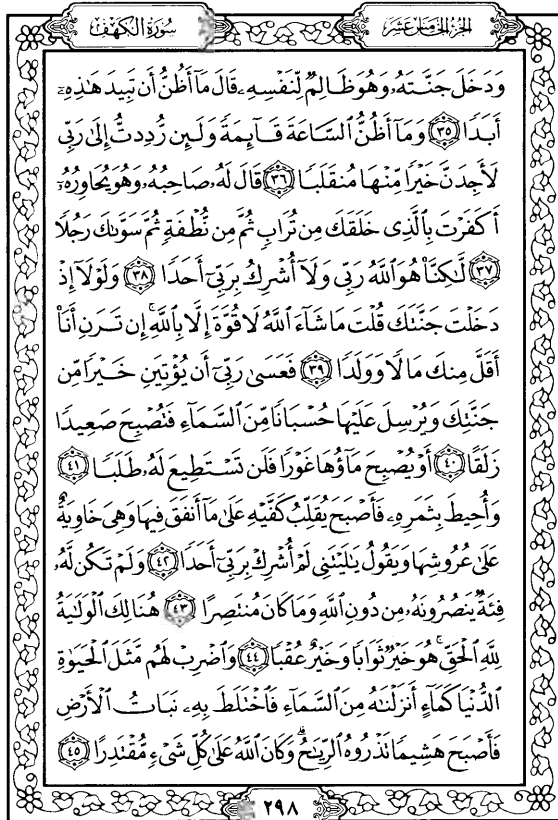 الجزء الخامس عشر
سورة الكهف
وَدَخَلَ جَنَّتَهُۥ وَهُوَ ظَالِمٌ لِّنَفْسِهِۦ قَالَ مَآ أَظُنُّ أَن تَبِيدَ هَٰذِهِۦٓ
أَبَدًا ٣٥ وَمَآ أَظُنُّ ٱلسَّاعَةَ قَآئِمَةً وَلَئِن رُّدِدتُّ إِلَىٰ رَبِّى
لَأَجِدَنَّ خَيْرًا مِّنْهَا مُنقَلَبًا ٣٦ قَالَ لَهُۥ صَاحِبُهُۥ وَهُوَ يُحَاوِرُهُۥٓ
أَكَفَرْتَ بِٱلَّذِى خَلَقَكَ مِن تُرَابٍ ثُمَّ مِن نُّطْفَةٍ ثُمَّ سَوَّىٰكَ رَجُلًا
٣٧ لَّٰكِنَّا۠ هُوَ ٱللَّهُ رَبِّى وَلَآ أُشْرِكُ بِرَبِّىٓ أَحَدًا ٣٨ وَلَوْلَآ إِذْ
دَخَلْتَ جَنَّتَكَ قُلْتَ مَا شَآءَ ٱللَّهُ لَا قُوَّةَ إِلَّا بِٱللَّهِ ۚ إِن تَرَنِ أَنَا۠
أَقَلَّ مِنكَ مَالًا وَوَلَدًا ٣٩ فَعَسَىٰ رَبِّىٓ أَن يُؤْتِيَنِ خَيْرًا مِّن
جَنَّتِكَ وَيُرْسِلَ عَلَيْهَا حُسْبَانًا مِّنَ ٱلسَّمَآءِ فَتُصْبِحَ صَعِيدًا
زَلَقًا ٤٠ أَوْ يُصْبِحَ مَآؤُهَا غَوْرًا فَلَن تَسْتَطِيعَ لَهُۥ طَلَبًا ٤١
وَأُحِيطَ بِثَمَرِهِۦ فَأَصْبَحَ يُقَلِّبُ كَفَّيْهِ عَلَىٰ مَآ أَنفَقَ فِيهَا وَهِىَ خَاوِيَةٌ
عَلَىٰ عُرُوشِهَا وَيَقُولُ يَٰلَيْتَنِى لَمْ أُشْرِكْ بِرَبِّىٓ أَحَدًا ٤٢ وَلَمْ تَكُن لَّهُۥ
فِئَةٌ يَنصُرُونَهُۥ مِن دُونِ ٱللَّهِ وَمَا كَانَ مُنتَصِرًا ٤٣ هُنَالِكَ ٱلْوَلَٰيَةُ
لِلَّهِ ٱلْحَقِّ ۚ هُوَ خَيْرٌ ثَوَابًا وَخَيْرٌ عُقْبًا ٤٤ وَٱضْرِبْ لَهُم مَّثَلَ ٱلْحَيَوٰةِ
ٱلدُّنْيَا كَمَآءٍ أَنزَلْنَٰهُ مِنَ ٱلسَّمَآءِ فَٱخْتَلَطَ بِهِۦ نَبَاتُ ٱلْأَرْضِ
فَأَصْبَحَ هَشِيمًا تَذْرُوهُ ٱلرِّيَٰحُ ۗ وَكَانَ ٱللَّهُ عَلَىٰ كُلِّ شَىْءٍ مُّقْتَدِرًا ٤٥
٢٩٨